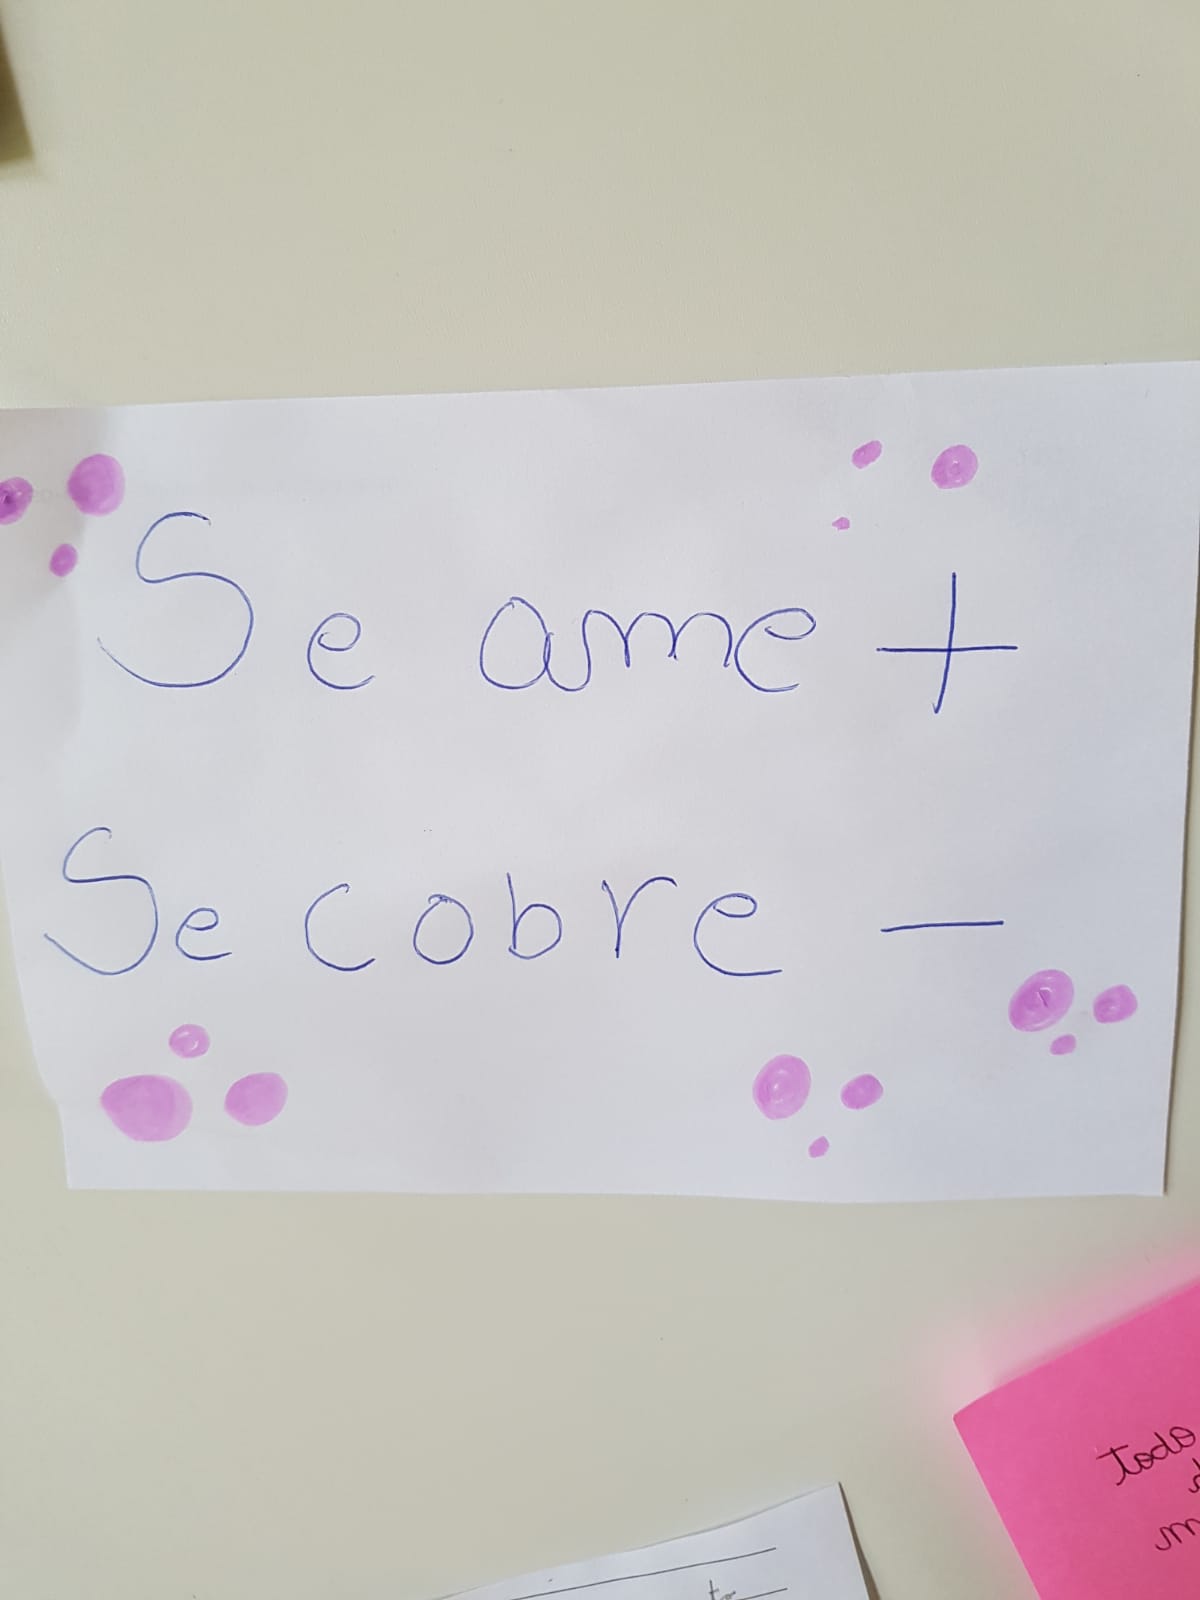 Se ame +
Se cobre -
todo